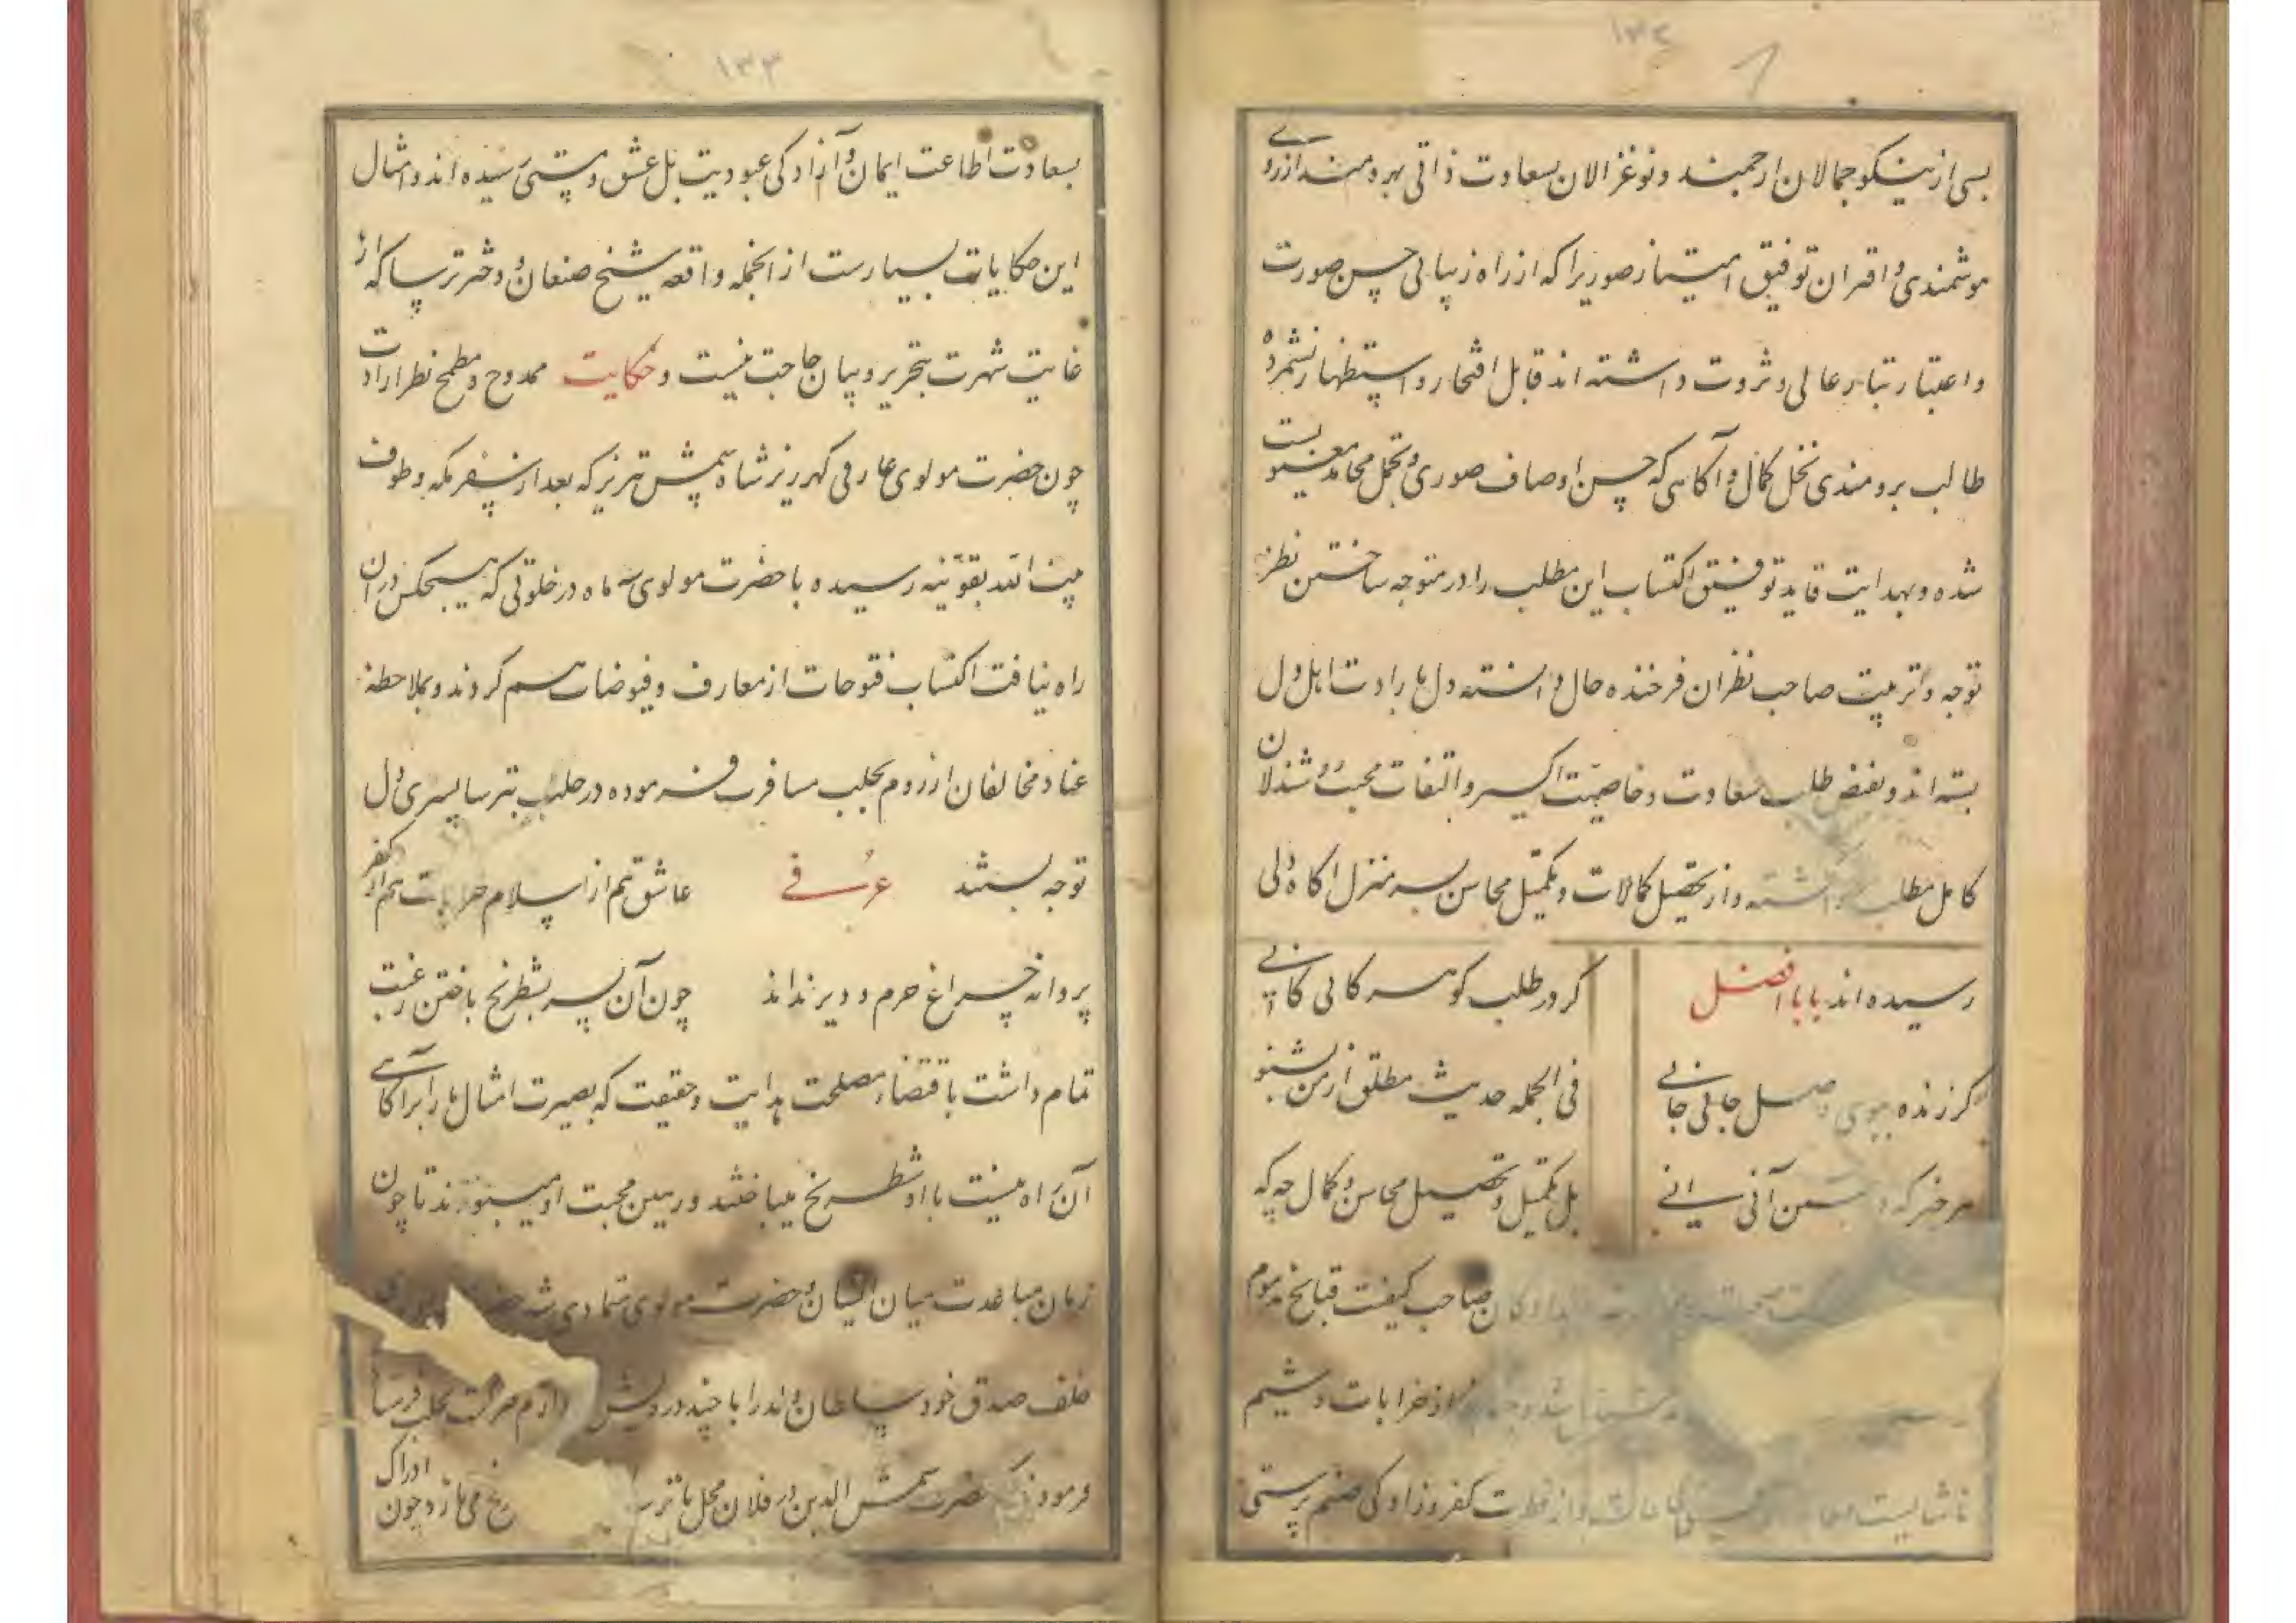 ۱۳۴
بسی از نیکو جمالان ارجمند و نو غزالان بسعادت ذاتی بهره‌مند از روی
هوشمندی و اقتران توفیق امتیاز صوریرا که از راه زیبائی حسن صورت
و اعتبار تبار عالی و ثروت داشته اند قابل افتخار و استظهار نشمرده
طالب برومندی نخل کمال و آگاهی که حسن اوصاف صوری و تجمل محامد معنویست
شده و بهدایت قاید توفیق اکتساب این مطلب را در متوجه ساختن نظر
توجه و تربیت صاحب نظران فرخنده حال دانسته دل بارادت اهل دل
بسته اند و بفیض طلب سعادت و خاصیت اکسیر التفات محبت
کامل مطلب داشته و از تحصیل کمالات و تکمیل محاسن بسر منزل آگاه دلی
رسیده اند بابا افضل گر در طلب گوهر کانی کانی
گر زنده ببوی وصل جانی جانی فی الجمله حدیث مطلق از من بشنو
هر چیز که در جستن آنی آنی بل تکمیل و تحصیل محاسن و کمال چه که
صاحب کیفیت قبایح مذموم
از خرابات و شیم
ناشایست و از ظلمت کفر و زادگی صنم پرستی
۱۳۳
بسعادت اطاعت ایمان و آزادگی عبودیت بل عشق و مستی رسیده اند و امثال
این حکایات بسیارست از انجمله واقعه شیخ صنعان و دختر ترسا که از
غایت شهرت بتحریر و بیان حاجت نیست و حکایت ممدوح و مطمح نظر ارادت
چون حضرت مولوی عارفی گهرریز شاه شمس تبریز که بعد از سفر مکه و طوف
بیت الله بقونیه رسیده با حضرت مولوی سه ماه در خلوتی که هیچکس در آن
راه نیافت اکتساب فتوحات از معارف و فیوضات هم کردند و بملاحظه
عناد مخالفان از روم بحلب مسافرت فرموده در حلب بترسا پسری دل
توجه بستند عرفی عاشق هم از اسلام خرابست هم از کفر
پروانه چراغ حرم و دیر نداند چون آن پسر بشطرنج باختن رغبت
تمام داشت باقتضاء مصلحت هدایت و حقیقت که بصیرت امثال ما را بر آگاهی
آن راه نیست با او شطرنج میباختند و رهین محبت او میبودند تا چون
زمان مباعدت میان ایشان و حضرت مولوی متمادی شد
خلف صدق خود سلطان ولد را با چند درویش از روم بحلب فرستا
فرمود که حضرت شمس الدین در فلان محل با ترسا می بازد چون ادراک